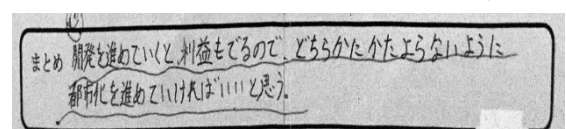 まとめ 開発を進めていくと、利益もでるので、どちらかたかたよらないように
都市化を進めていければいいと思う。